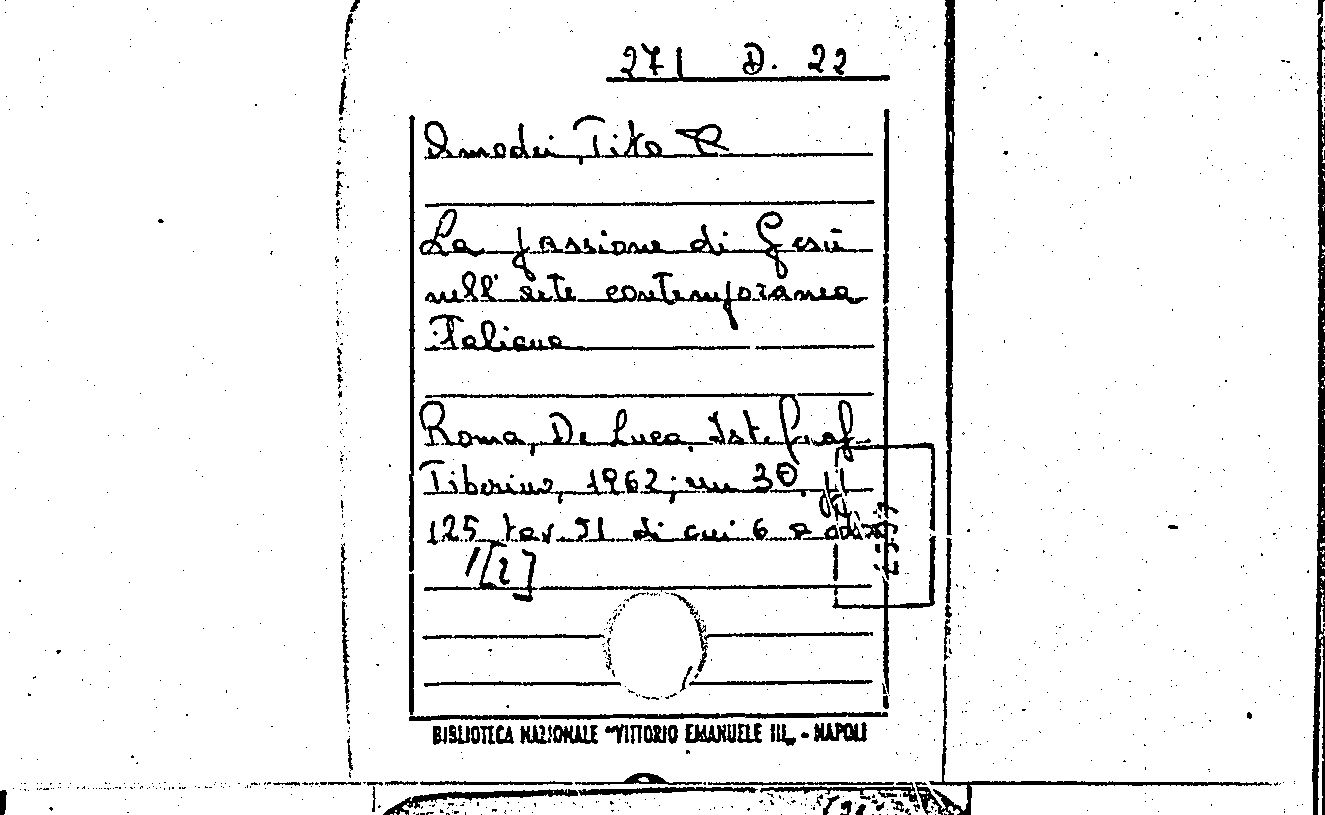 271 D. 22
Amodei, Tito P.
La passione di Gesù
nell'arte contemporanea
Italiana
Roma, De Luca, Ist. Graf.
Tiberino, 1962; cm 30,
125 tav. 51 di cui 6 a
1/[2]
BIBLIOTECA NAZIONALE "VITTORIO EMANUELE III„ - NAPOLI